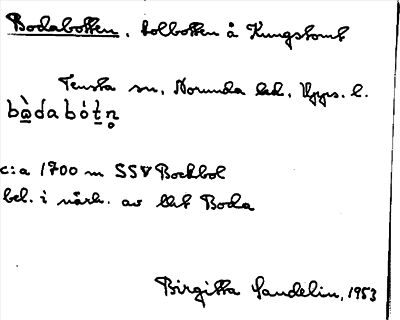 Bodabotten, tolbotten å Kungstomt
Tensta sn, Norunda hd, Upps. l.
bò̱dabót̠n̥
c:a 1700 m SSV Bockbol
bel. i närh. av lht Boda
Birgitta Sandelin, 1953